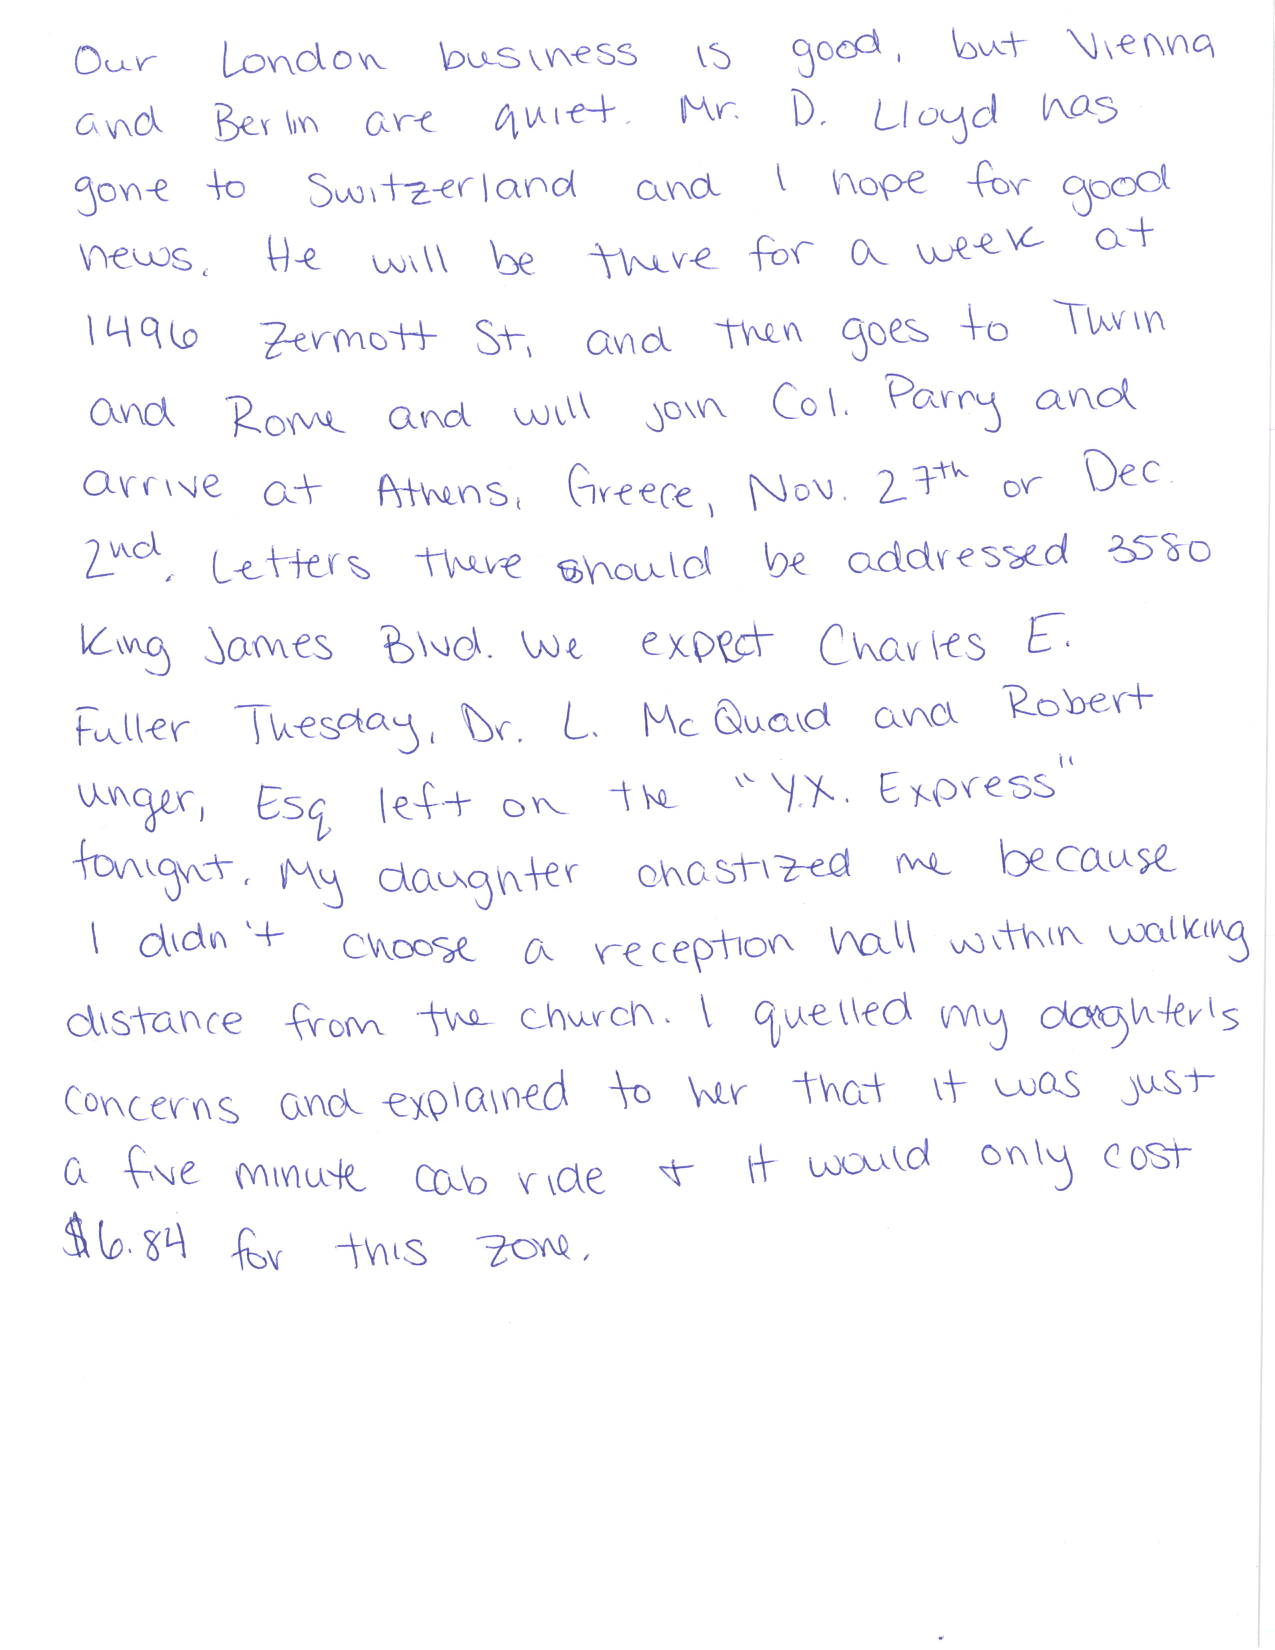 Our London business is good, but Vienna
and Berlin are quiet. Mr. D. Lloyd has
gone to Switzerland and I hope for good
news. He will be there for a week at
1496 Zermott St. and then goes to Turin
and Rome and will join Col. Parry and
arrive at Athens, Greece, Nov. 27th or Dec.
2nd. Letters there should be addressed 3580
King James Blvd. We expect Charles E.
Fuller Tuesday. Dr. L. McQuaid and Robert
Unger, Esq left on the "Y.X. Express"
tonight. My daughter chastized me because
I didn't choose a reception hall within walking
distance from the church. I quelled my daughter's
concerns and explained to her that it was just
a five minute cab ride + it would only cost
$6.84 for this zone.